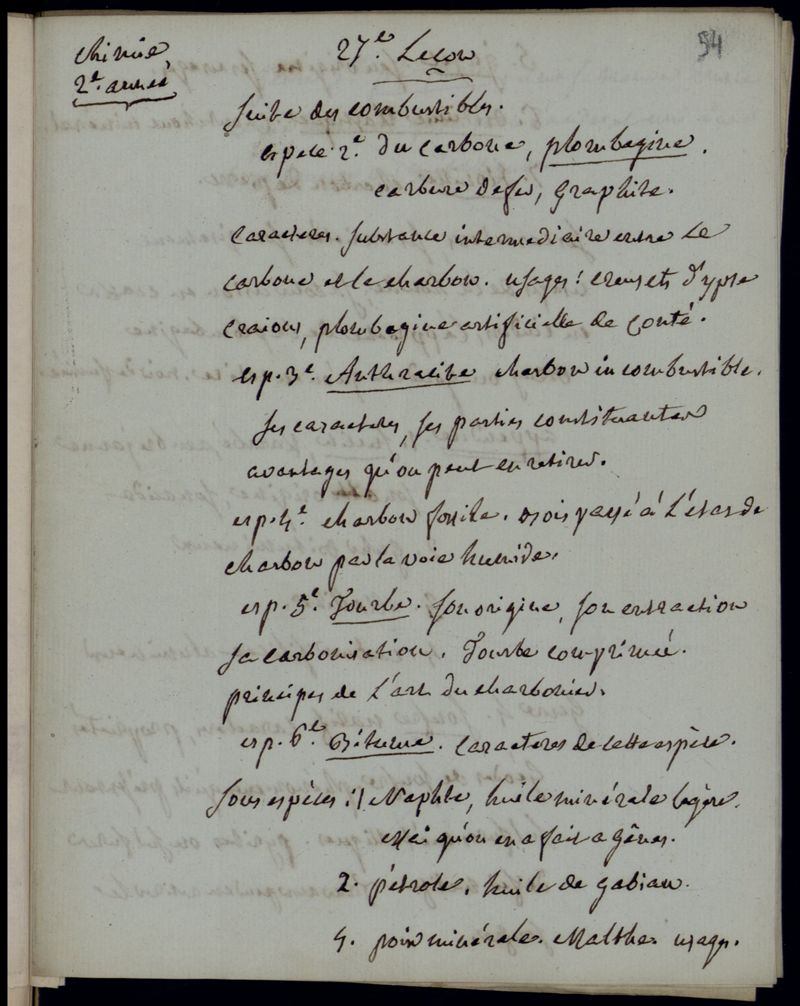 Chimie, 27e. Leçon 54
2e. année
Suite des combustibles.
espece 2e. du carbone, plombagine.
carbure de fer, Graphite.
Caracteres. Substance intermediaire entre Le
carbone et le charbon. usages: creusets d'ypse
craions, plombagine artificielle de conté.
esp. 3e. Anthracite charbon incombustible.
Ses caracteres, ses parties constituantes
avantages qu'on peut en retirer.
esp. 4e. charbon fossile. bois passé à L'état de
charbon par la voie humide.
esp. 5e. Tourbe. son origine, son extraction
Sa carbonisation. Tourbe comprimée.
principes de L'art du charbonier.
esp. 6e. Bitume. Caracteres de cette espèce.
Sous espèces: 1 Naphte, huile minérale legère.
essai qu'on en a fait a Gênes.
2. pétrole, huile de gabian.
4. poix minérale. Malthe. usages.